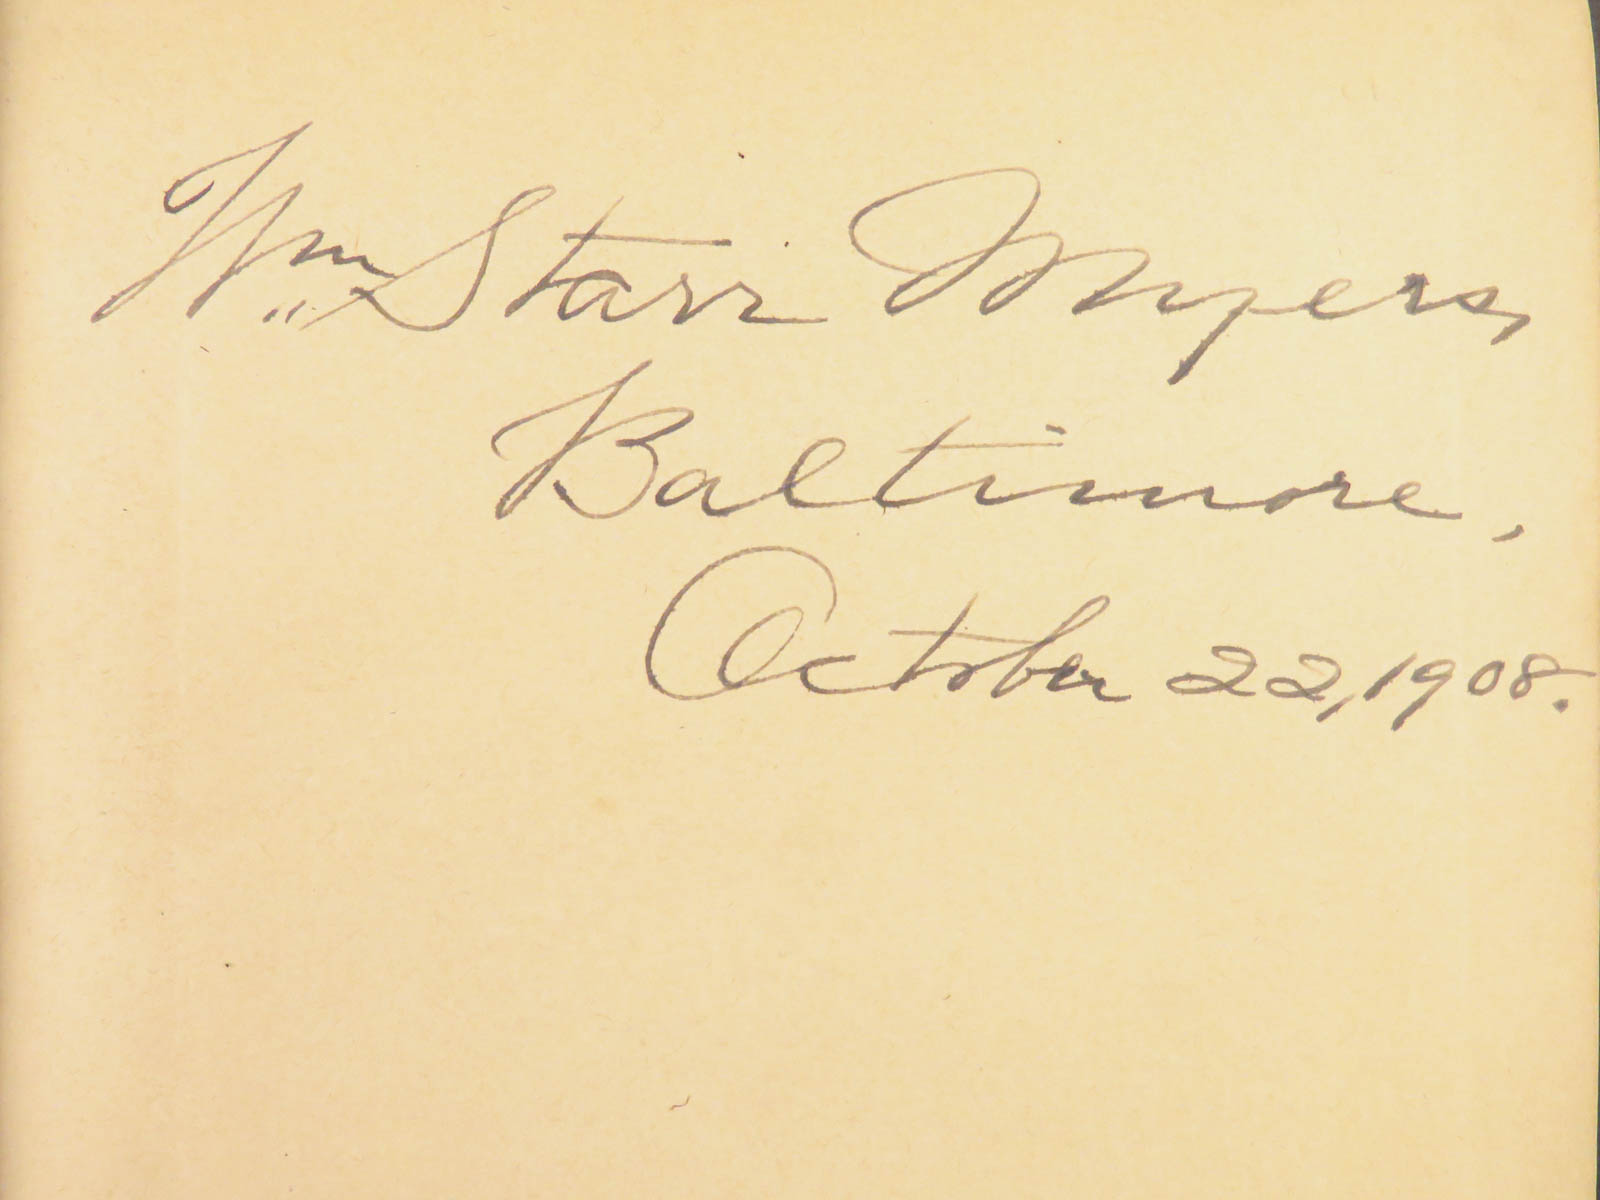 Wm. Starr Myers,
Baltimore,
October 22, 1908.